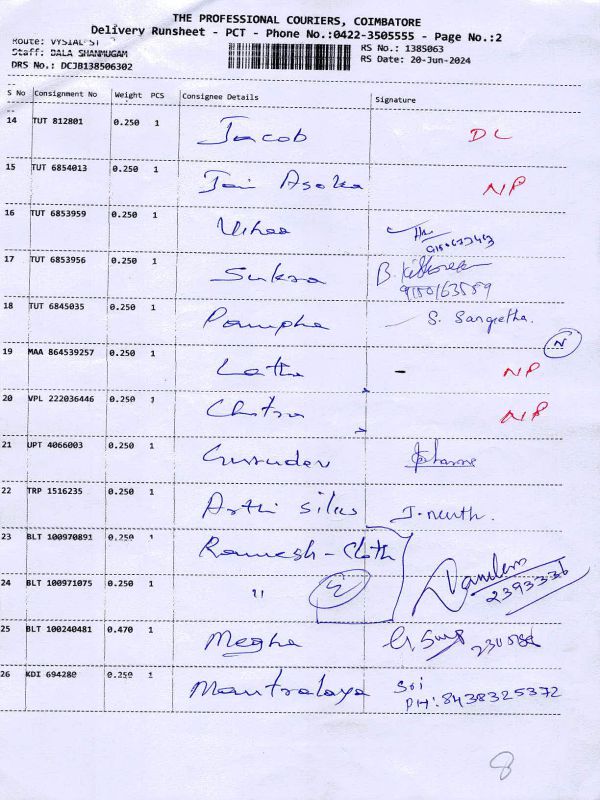 THE PROFESSIONAL COURIERS, COIMBATORE
Delivery Runsheet - PCT - Phone No.:0422-3505555 - Page No.:2
Route: VYSIAL ST
Staff: BALA SHANMUGAM
RS No.: 1385063
DRS No.: DCJB138506302
RS Date: 20-Jun-2024
S No Consignment No Weight PCS Consignee Details Signature
14 TUT 812801 0.250 1 Jacob DL
15 TUT 6854013 0.250 1 Jai Asoka NP
16 TUT 6853959 0.250 1 Vihaa
17 TUT 6853956 0.250 1 Suksa B. Kishore
9150163559
18 TUT 6845035 0.250 1 Pampha S. Sangetha.
N
19 MAA 864539257 0.250 1 Latha - NP
20 VPL 222036446 0.250 1 Chitra NP
21 UPT 4066003 0.250 1 Gurudev
22 TRP 1516235 0.250 1 Arthi Silks
23 BLT 100970891 0.250 1 Ramesh - Cloth
2393336
24 BLT 100971075 0.250 1 "
25 BLT 100240481 0.470 1 Megha
26 KDI 694280 0.250 1 Mantralaya Sri
PH: 8438325372
8